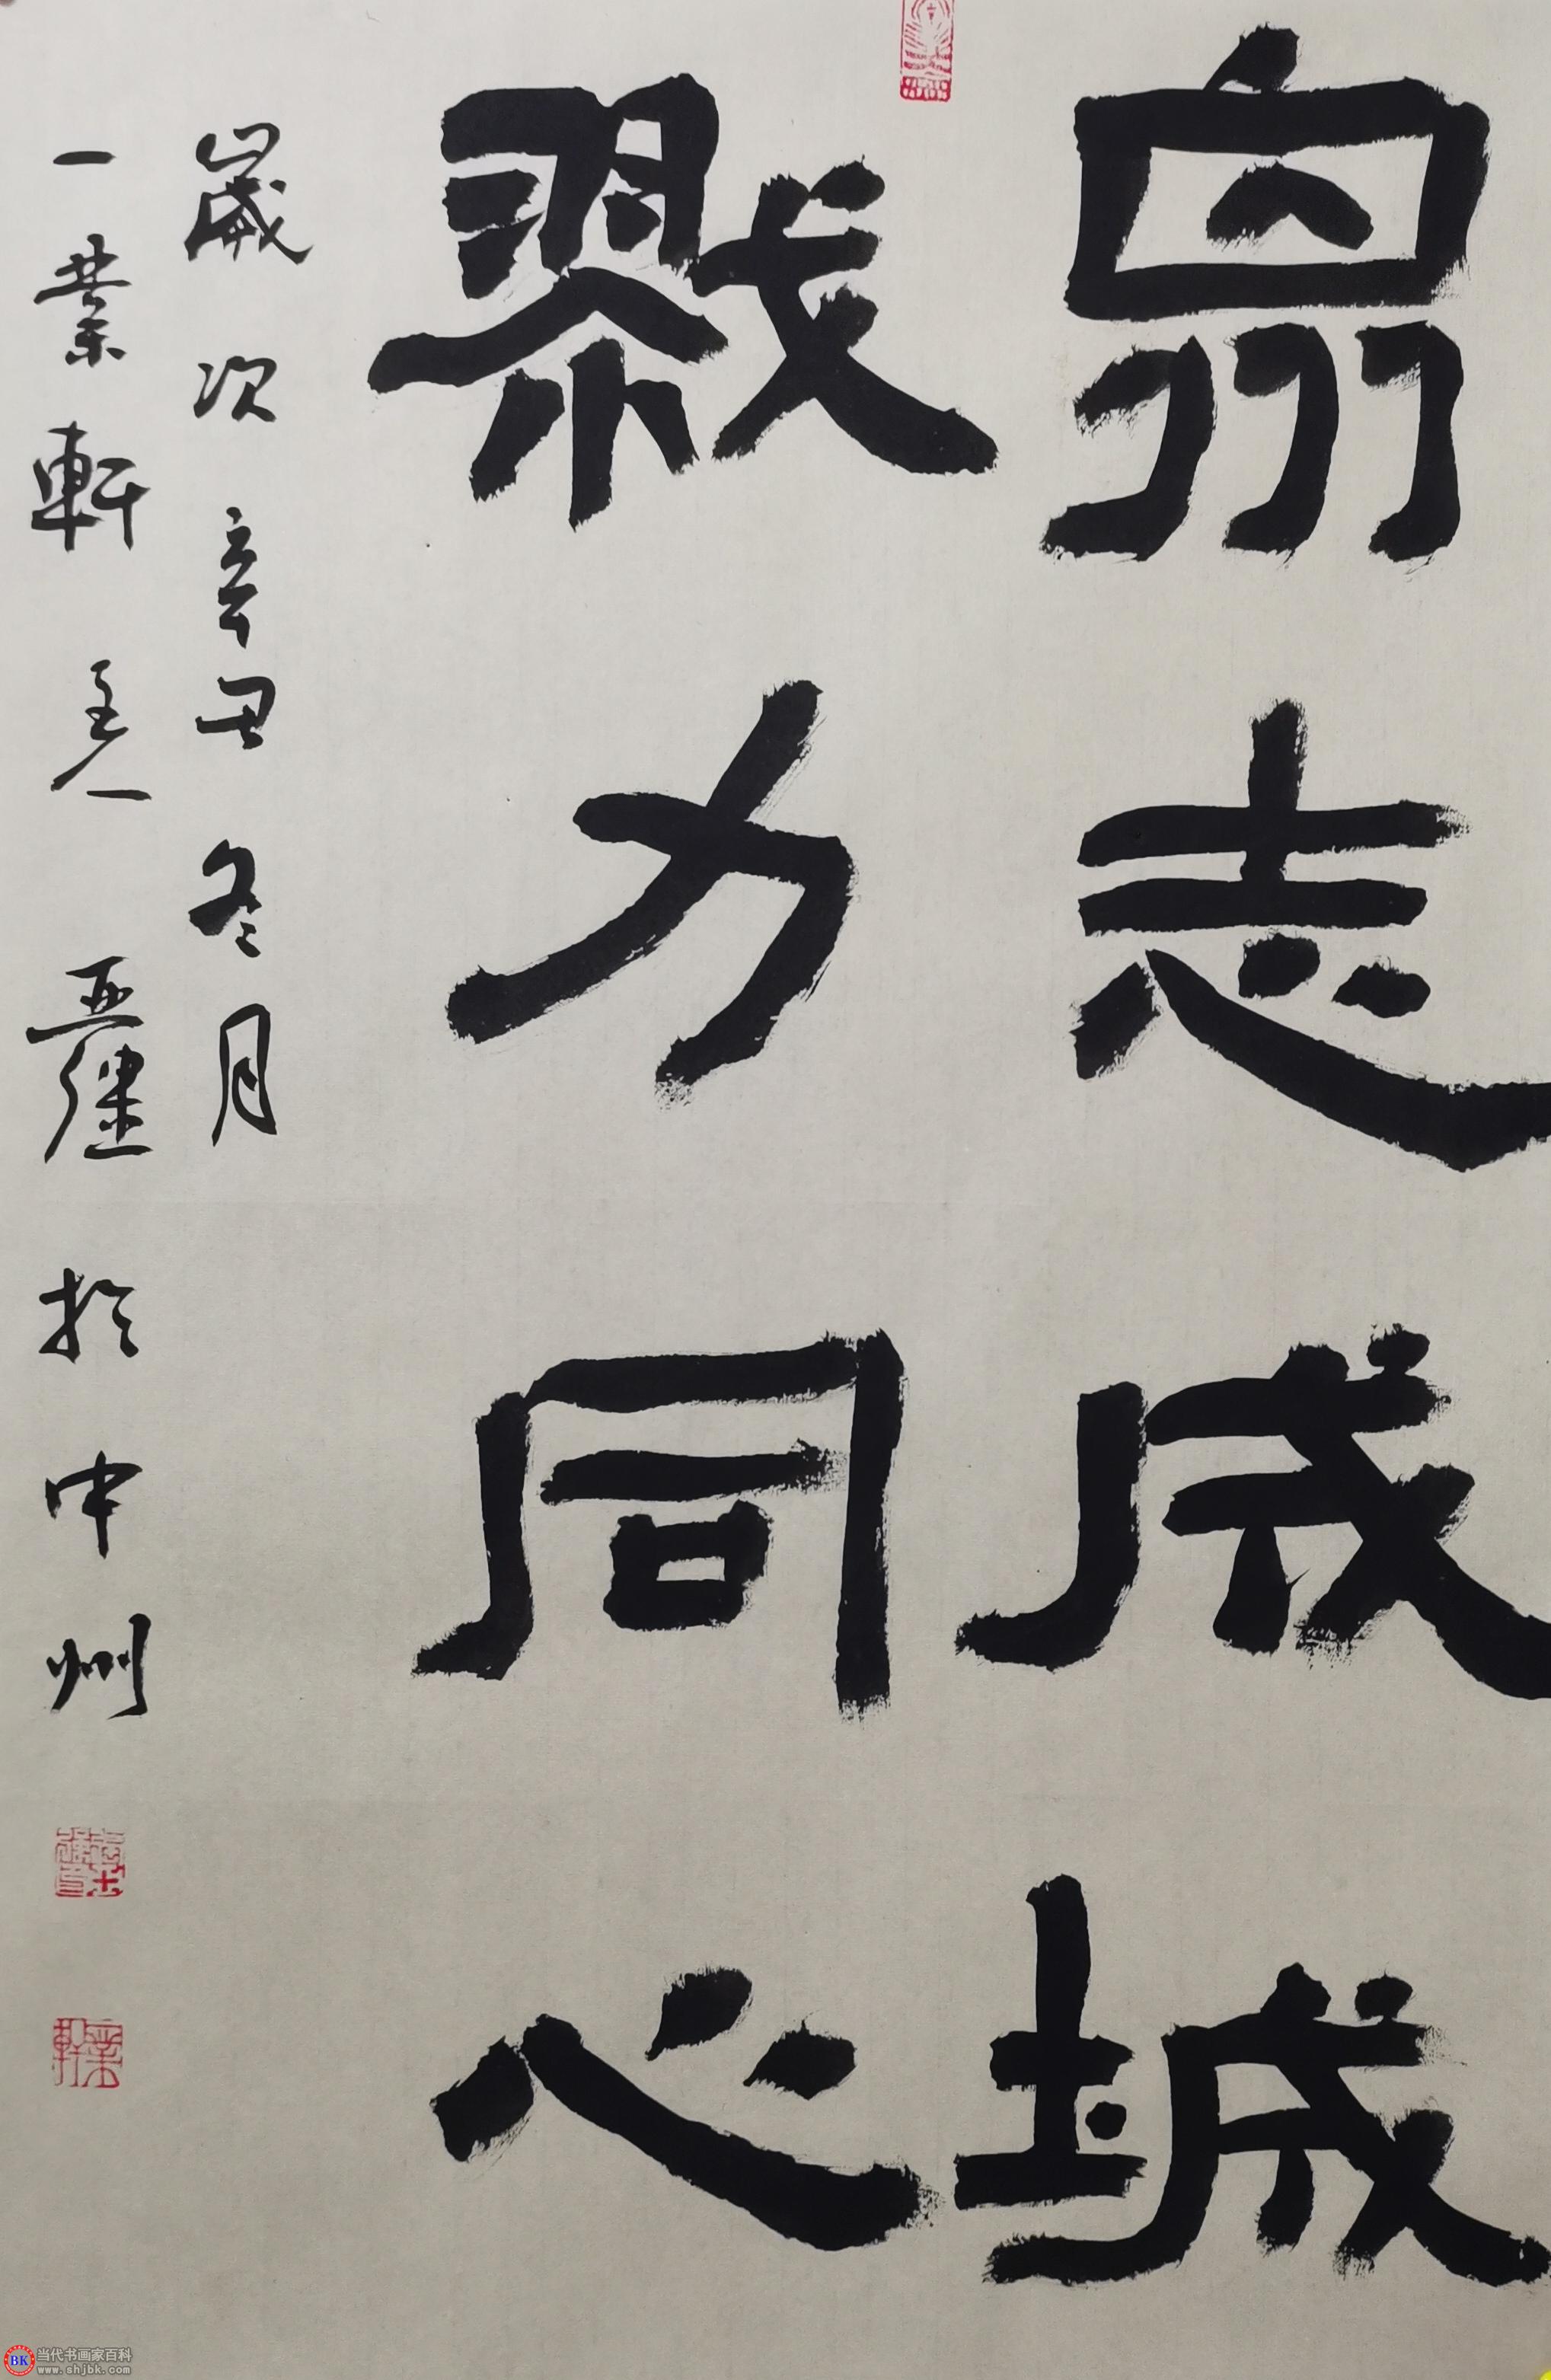 衆志成城
戮力同心
歲次辛丑冬月
一業軒主人亞於中州
一業軒
BK
当代书画家百科
www.shjbk.com